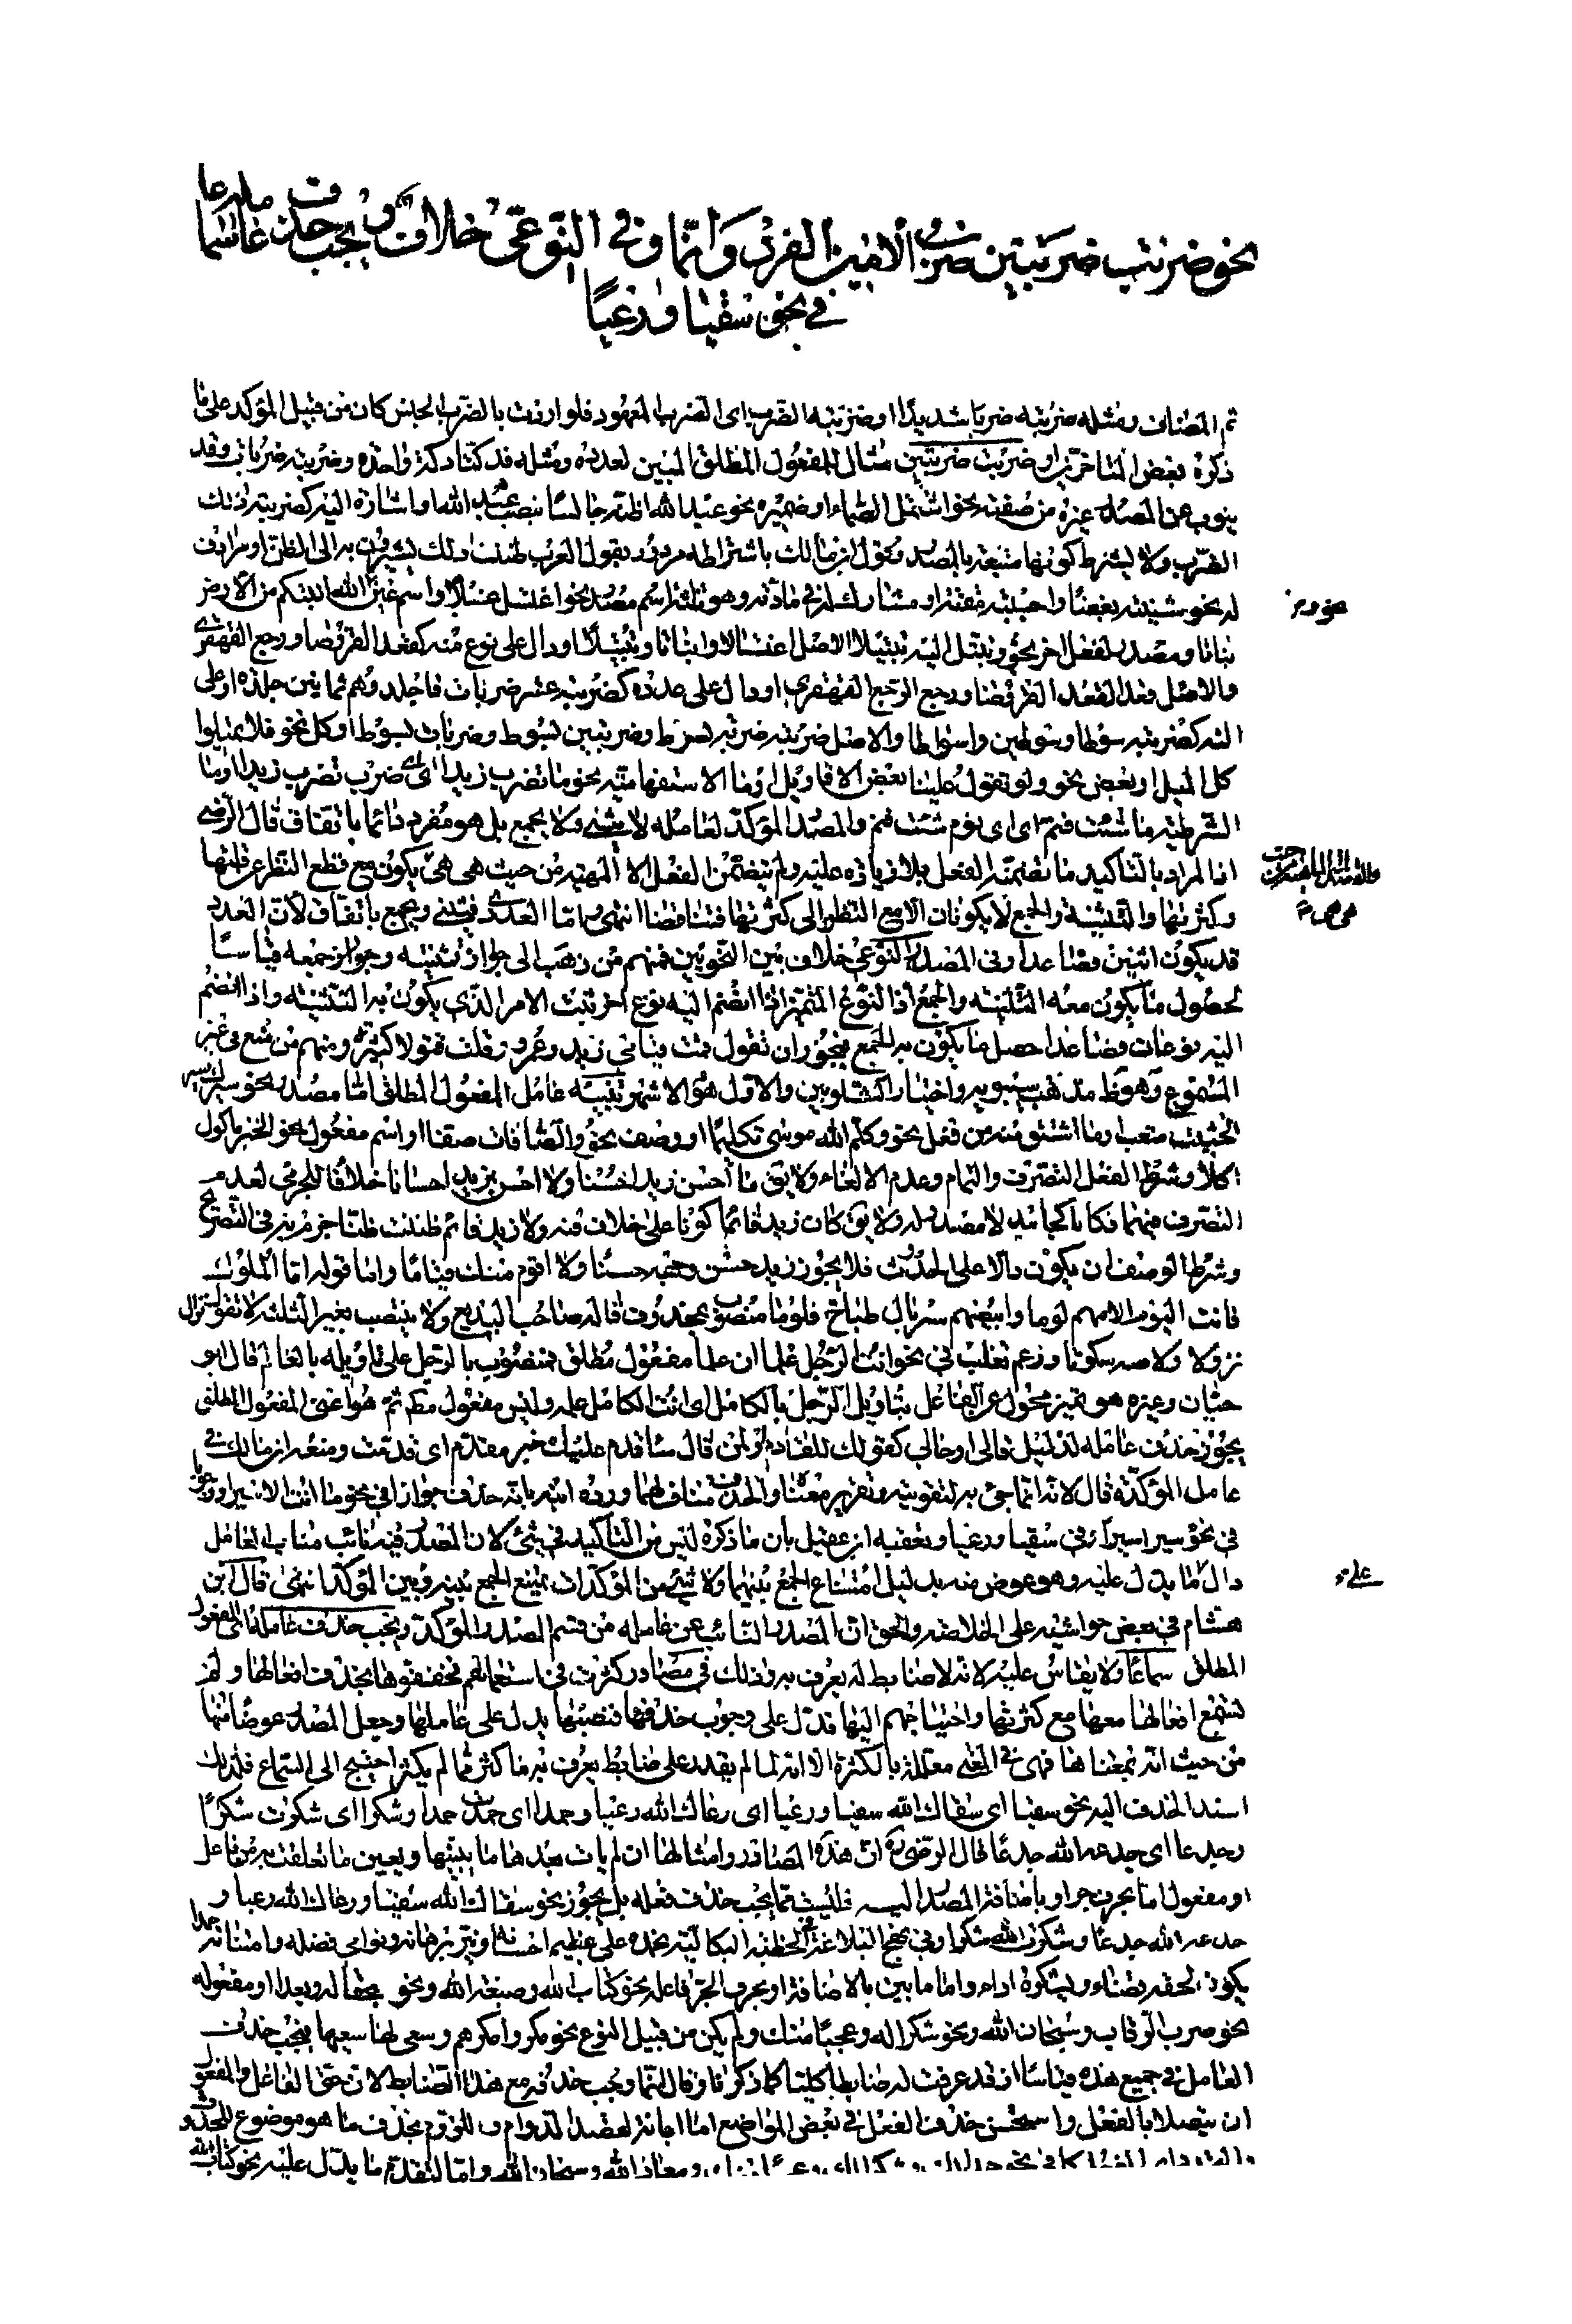 نحو ضربت ضربتين ضرب الامير الفرد وانما وفي النوعي خلاف ويجب حذف عامله سماعا
في نحو سقيا ورعيا
ثم المضاف ومثله ضربته ضربا شديدا او ضربته الضرب اي الضرب المعهود فلو اردت بالضرب الجنس كان من قبيل المؤكد على ما
ذكره بعض المتاخرين او ضربت ضربتين مثال للمفعول المطلق المبين لعدده ومثله قد دكتا دكة واحدة وضربته ضربات وقد
ينوب عن المصدر غيره من صفته نحو اشتمل الصماء او ضميره نحو عبد الله اظنه جالسا بنصب عبد الله او اشارة اليه كضربته ذلك
الضرب ولا يشترط كونها متبعة بالمصدر وقول ابن مالك باشتراطه مردود بقول العرب ظننت ذلك يشيرون به الى الظن او مرادف
له نحو شنئته بغضا واحببته مقة او مشارك له في مادته وهو ثلاثة اسم مصدر نحو اغتسل غسلا واسم عين نحو الله انبتكم من الارض
نباتا ومصدر لفعل اخر نحو وتبتل اليه تبتيلا الاصل اغتسالا وانباتا وتبتلا او دال على نوع منه كقعد القرفصا ورجع القهقرى
والاصل قعد القعدة القرفصا ورجع الرجع القهقرى او دال على عدده كضربته عشر ضربات فاجلدوهم ثمانين جلدة او على
آلته كضربته سوطا وسوطين واسواطا والاصل ضربته ضربة بسوط وضربتين بسوط وضربات بسوط او كل نحو فلا تميلوا
كل الميل او بعض نحو ولو تقول علينا بعض الاقاويل او ما الاستفهامية نحو ما تضرب زيدا اي اي ضرب تضرب زيدا او ما
الشرطية ما شئت فقم اي اي نوم شئت فنم والمصدر المؤكد لعامله لا يثنى ولا يجمع بل هو مفرد دائما باتفاق قال الرضي
اذ المراد بالتاكيد ما تضمنه الفعل بلا زيادة عليه ولم يتضمن الفعل الا المهية من حيث هي هي يكون مع قطع النظر عن قلتها
وكثرتها والتثنية والجمع لا يكونان الا مع النظر الى كثرتها فتناقضا انتهى واما العددي فيثنى ويجمع باتفاق لان العدد
قد يكون اثنين فصاعدا وفي المصدر النوعي خلاف بين النحويين فمنهم من ذهب الى جواز تثنيته وجواز جمعه قياسا
لحصول ما يكون معه التثنية والجمع اذ النوع المتميز اذا انضم اليه نوع اخر تثبت الامر الذي يكون به التثنية واذا انضم
اليه نوعان فصاعدا حصل ما يكون به الجمع فيجوز ان تقول قمت قيامي زيد وعمرو وقلت قولا كثيرة ومنهم من منع في غير
المسموع وهو ظ مذهب سيبويه واختيار الشلوبين والاول هو الاشهر تنبيه عامل المفعول المطلق اما مصدر نحو سيرك السير
الحثيث متعب او ما اشتق منه من فعل نحو وكلم الله موسى تكليما او وصف نحو والصافات صفا او اسم مفعول نحو الخبز ماكول
اكلا وشرط الفعل التصرف والتمام وعدم الالغاء ولا يق ما احسن زيدا حسنا ولا احسن بزيد احسانا خلافا للجرمي لعدم
التصرف فيهما فكانا كجامد لا مصدر له ولا يق كان زيد قائما كونا على خلاف فيه ولا زيد قائم ظننت ظنا جزم به في التصريح
وشرط الوصف ان يكون دالا على الحدوث فلا يجوز زيد حسن وجهه حسنا ولا اقوم منك قياما واما قوله اما الملوك
فانت اليوم الامهم لوما وابيضهم سربال طباخ فلوما منصوب بمحذوف قاله صاحب البديع ولا ينتصب بغير الثلثة لا تقول نزال
نزولا ولا صه سكوتا وزعم ثعلب في نحو انت الرجل علما ان علما مفعول مطلق منصوب بالرجل على تاويله بالعالم قال ابو
حيان وغيره هو تميز محول عن الفاعل بتاويل الرجل بالكامل اي انت الكامل علمه وليس مفعول مطلقا ثم هو اعني المفعول المطلق
يجوز حذف عامله لدليل قالي او حالي كقولك للقادم او لمن قال ساقدم عليك خير مقدم اي قدمت ومنعه ابن مالك في
عامل المؤكدة قال لانه انما جئ به لتقويته وتقرير معناه والحذف مناف لهما ورده ابنه بانه حذف جوازا في نحو ما انت الا سيرا ووجوبا
في نحو سيرا سيرا وفي سقيا ورعيا وتعقبه ابن عقيل بان ما ذكره ليس من التاكيد في شئ لان المصدر فيه نائب مناب العامل
دال على ما يدل عليه وهو عوض منه بدليل امتناع الجمع بينهما ولا شئ من المؤكدات يمتنع الجمع بينه وبين المؤكد انتهى قال ابن
هشام في بعض حواشيه على الخلاصة والحق ان المصدر النائب عن عامله من قسم المصدر المؤكد ويجب حذف عامله اي المفعول
المطلق سماعا ولا يقاس عليه لانه لا ضابط له يعرف به وذلك في مصادر كثرت في استعمالهم فخففوها بحذف افعالها ولم
تسمع افعالها معها مع كثرتها واحتياجهم اليها فدل على وجوب حذفها فنصبها يدل على عاملها وجعل المصدر عوضا منها
من حيث انه بمعناها فهي في المعنى معللة بالكثرة الا انه لما لم يقدر على ضابط يعرف به ما كثر مما لم يكثر احتيج الى السماع فلذلك
اسند الحذف اليه نحو سقيا اي سقاك الله سقيا ورعيا اي رعاك الله رعيا وحمدا اي حمدت حمدا وشكرا اي شكرت شكرا
وجدعا اي جدعه الله جدعا قال الرضي ره ان هذه المصادر وامثالها ان لم يات بعدها ما يبينها ويعين ما تعلقت به من فاعل
او مفعول اما بحرف جر او باضافة المصدر اليه فليست مما يجب حذف فعله بل يجوز نحو سقاك الله سقيا ورعاك الله رعيا و
جدعه الله جدعا وشكرت الله شكرا وفي نهج البلاغة في الخطبة البكالية نحمده على عظيم احسانه ونير برهانه ونوامي فضله وامتنانه حمدا
يكون لحقه قضاء ولشكره اداء واما ما بين بالاضافة او بحرف الجر فاعله نحو كتاب الله وصبغة الله ونحو سحقا له وبعدا او مفعوله
نحو ضرب الرقاب وسبحان الله ونحو شكرا له وعجبا منك ولم يكن من قبيل النوع نحو مكروا مكرهم وسعى لها سعيها فيجب حذف
العامل في جميع هذه قياسا اذ قد عرفت له ضابطا كليا كما ذكرنا وقال انما وجب حذفه مع هذا الضابط لان حق الفاعل والمفعول
ان يتصلا بالفعل واستحسن حذف الفعل في بعض المواضع اما ابانة لقصد الدوام واللزوم بحذف ما هو موضوع للحدوث
ومعاذ الله وسبحان الله واما لتقدم ما يدل عليه نحو كتاب الله